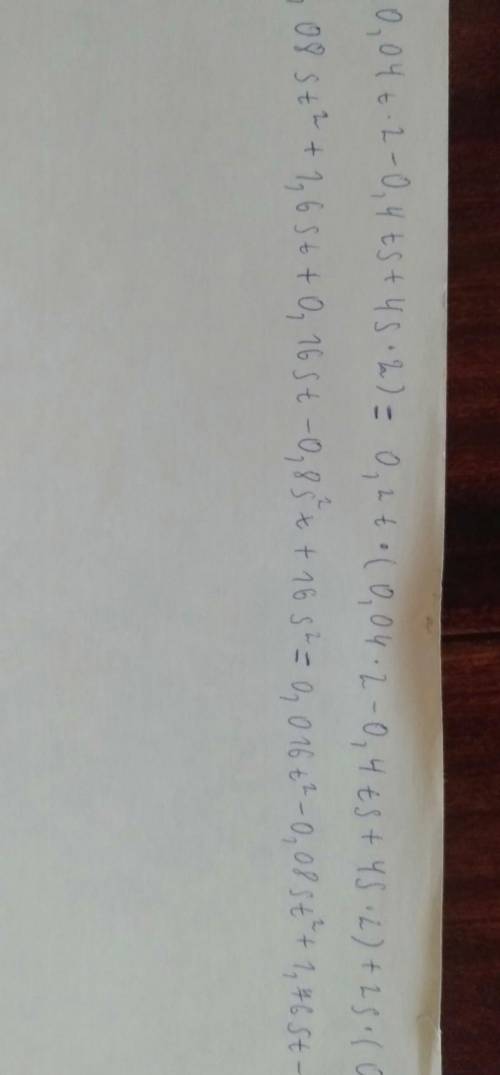 0,04t·2-0,4ts+4s·2)=0,2t·(0,04·2-0,4ts+4s·2)+2s·(0
,08st²+1,6st+0,16st-0,8s²t+16s²=0,016t²-0,08st²+1,76st-